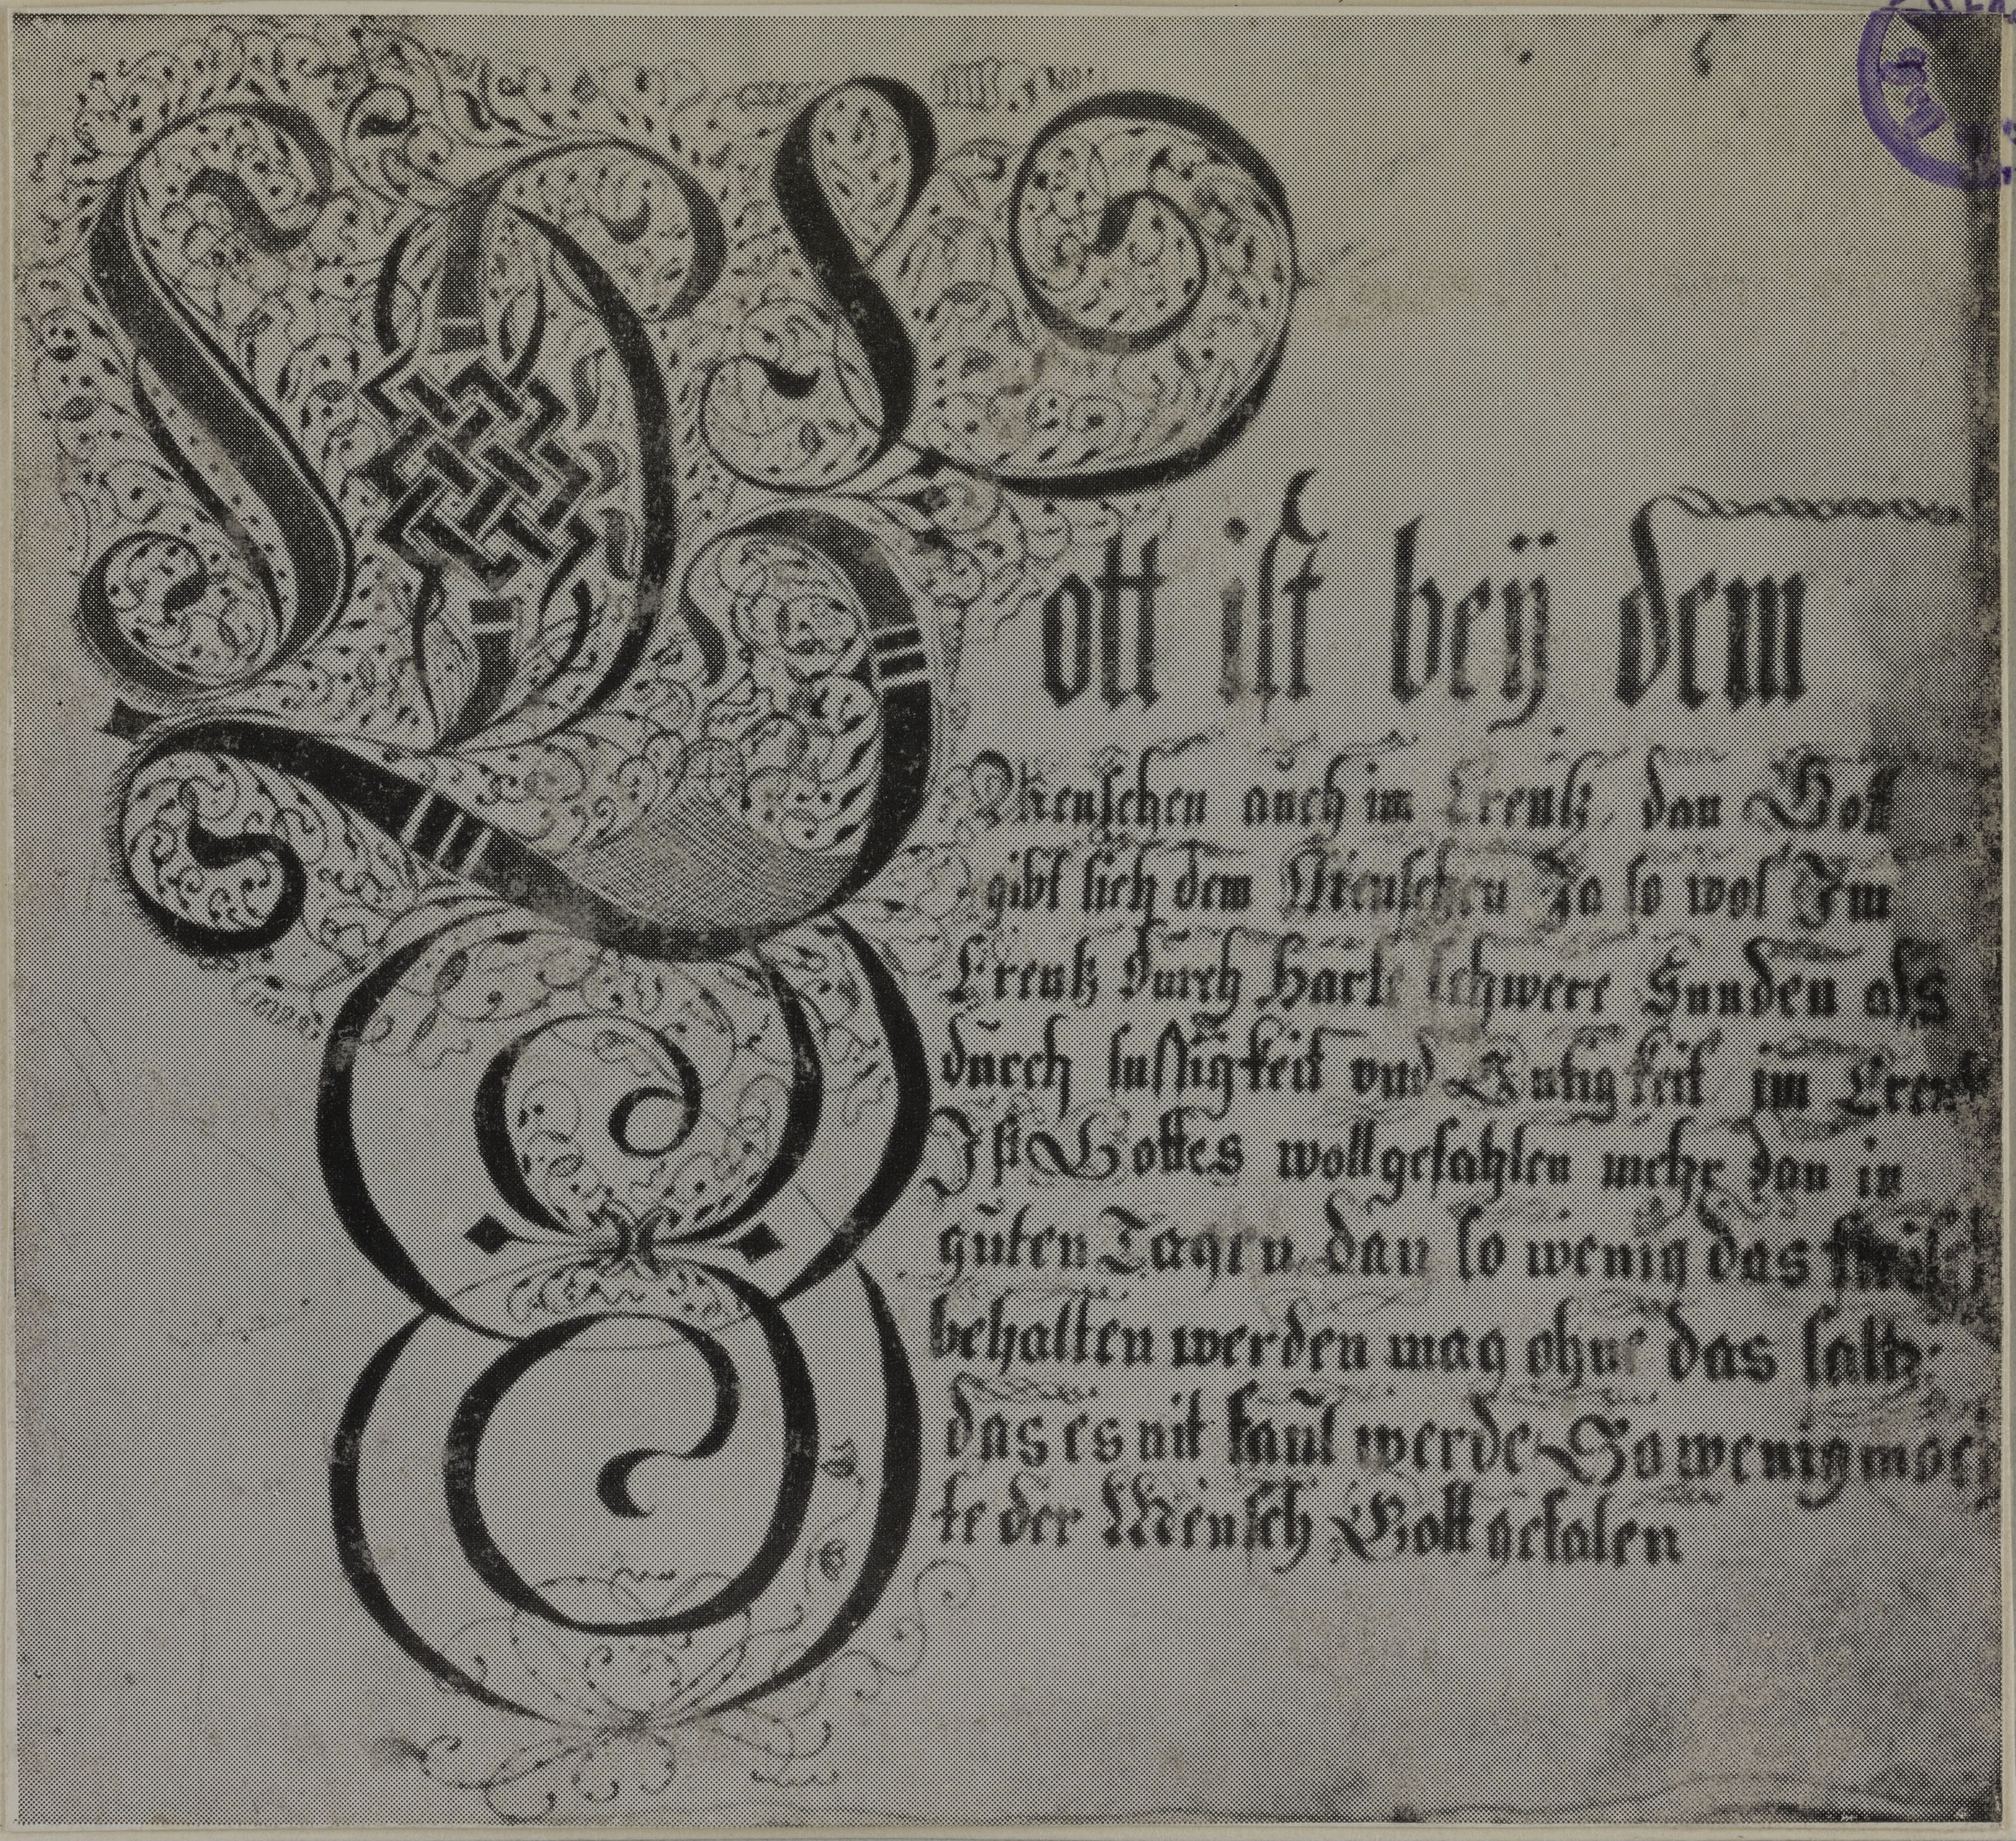 Gott ist beÿ dem
Menschen auch im Creutz dan Gott
gibt sich dem Menschen Ja so wol Im
Creutz durch Harte schwere Sunden als
durch sussigkeit vnd im Creutz
Ist Gottes wollgefahlen mehr dan in
guten Tagen dan so wenig das fleisch
behalten werden mag ohne das saltz
das es nit faul werde So wenig moe
te der Mensch Gott gefalen